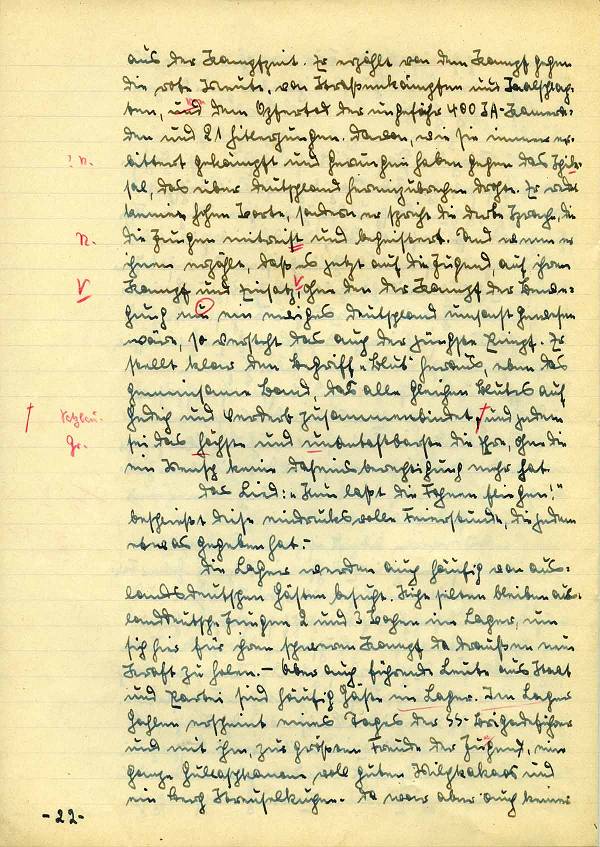 aus der Kampfzeit. Er erzählt von dem Kampf gegen
die rote Meute, von Straßenkämpfen und Saalschlach-
ten, und dem Opfertod der ungefähr 400 SA-Kamera-
den und 21 Hitlerjungen. Davon, wie sie immer ver-
? R. bittert gekämpft und gerungen haben gegen das Schik-
sal, das über Deutschland hereinzubrechen drohte. Er redet
keine hohen Worte, sondern er spricht die derbe Sprache, die
R. die Jungen mitreist und begeistert. Und wenn er
ihnen erzählt, daß es jetzt auf die Jugend, auf ihren
V Kampf und Einsatz, ohne den der Kampf der Bewe-
gung um ein ewiges Deutschland umsonst gewesen
wäre, so versteht das auch der jüngste Pimpf. Er
stellt klar den Begriff "Blut" heraus, eben das
gemeinsame Band, das alle gleichen Blutes auf
Gedeih und Verderb zusammenbindet, und jedem
Gr. sei das höchste und unantastbarste die Ehre, ohne die
ein Mensch keine Daseinsberechtigung mehr hat.
Das Lied: "Nun laßt die Fahnen fliegen!"
beschließt diese eindrucksvolle Feierstunde, die jedem
etwas gegeben hat.-
Die Lager werden auch häufig von aus-
landsdeutschen Gästen besucht. Nicht selten bleiben aus-
landdeutsche Jungen 2 und 3 Wochen im Lager, um
sich hier für ihren schweren Kampf da draußen neue
Kraft zu holen. - Aber auch führende Leute aus Staat
und Partei sind häufig Gäste im Lager. Im Lager
erscheint eines Tages der SS-Brigadeführer
und mit ihm, zur größten Freude der Jungen, eine
ganze Gulaschkanone voll guten Milchkakaos und
ein Berg Streuselkuchen. Da war aber auch keiner
-22-